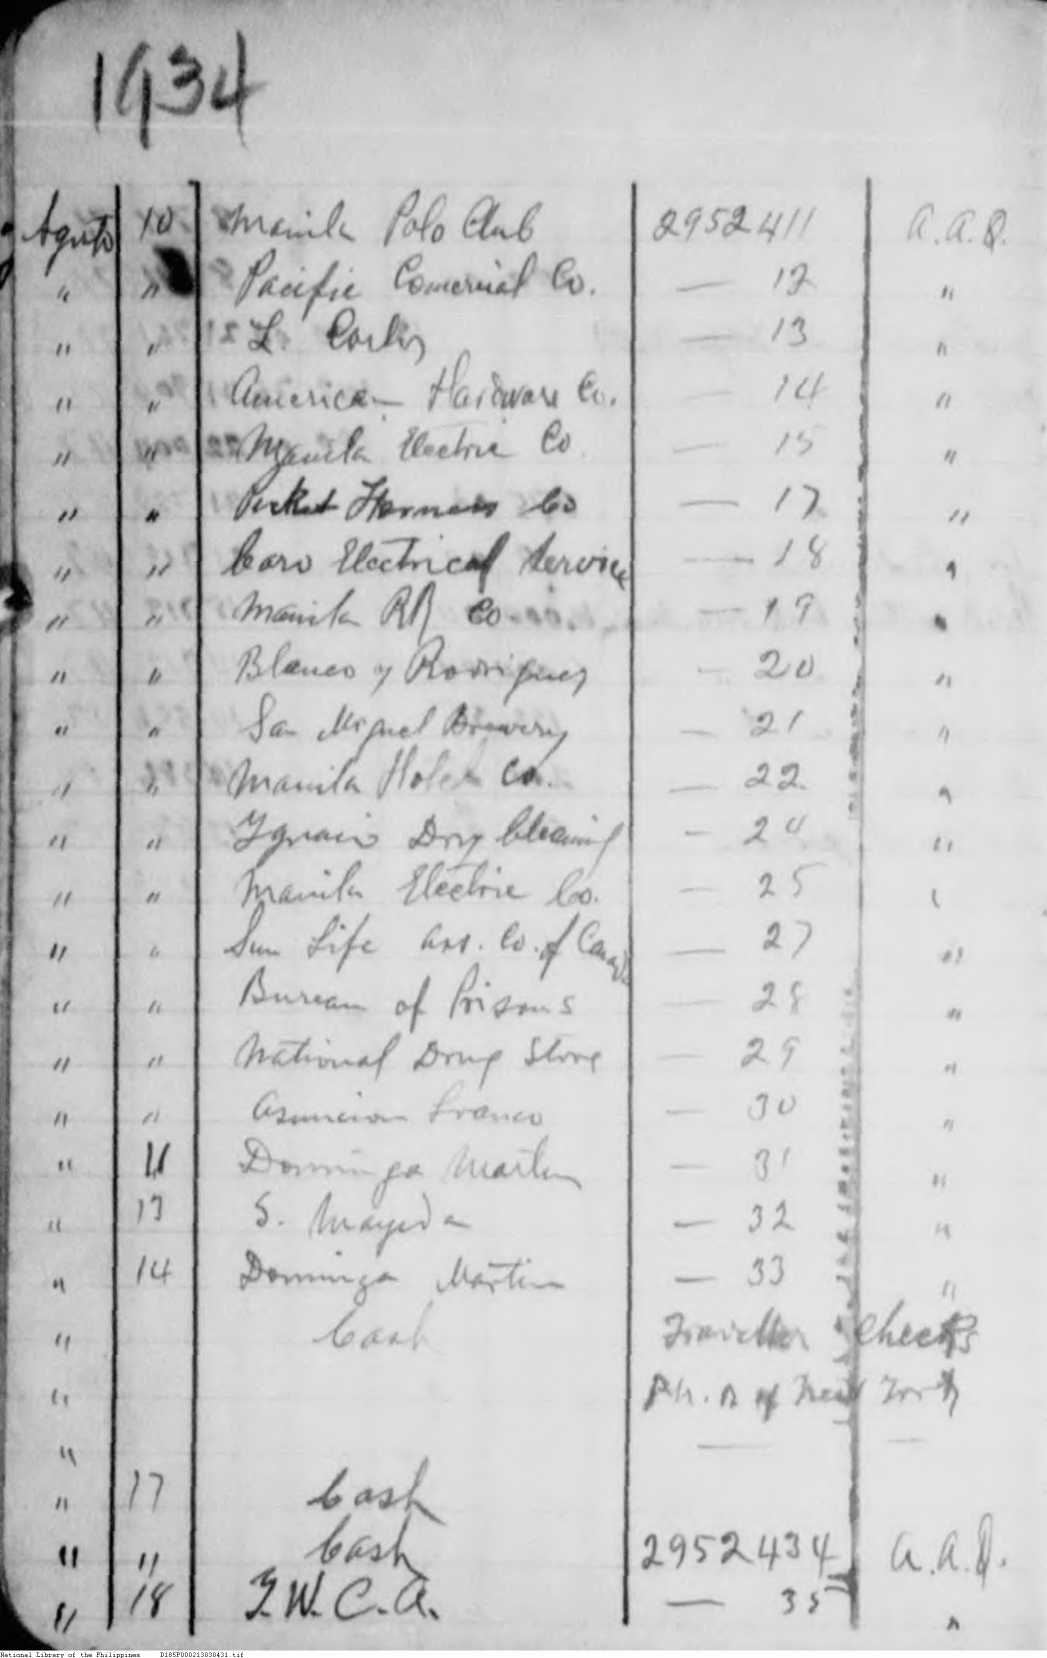 1934
Agosto 10 Manila Polo Club 2952411 A.A.Q.
" " Pacific Comercial Co. — 12 "
" " L. — 13 "
" " American Hardware Co. — 14 "
" " Manila Electric Co — 15 "
" " Co — 17 "
" " Caro Electrical Service — 18 "
" " Manila RR Co. — 19 "
" " Blanco y Rodriguez — 20 "
" " San Miguel Brewery — 21 "
" " Manila Hotel Co. — 22 "
" " Ygnacio Dry Cleaning — 24 "
" " Manila Electric Co. — 25 "
" " Sun Life Ass. Co. of Canada — 27 "
" " Bureau of Prisons — 28 "
" " National Drug Store — 29 "
" " Asuncion Franco — 30 "
" 11 Dominga Martin — 31 "
" 13 S. Mayeda — 32 "
" 14 Dominga Martin — 33 "
" Cash Traveller Checks
" of New York
" — —
" 17 Cash
" " Cash 2952434 A.A.Q.
" 18 Y.W.C.A. — 35 "
National Library of the Philippines D185P000213030431.tif